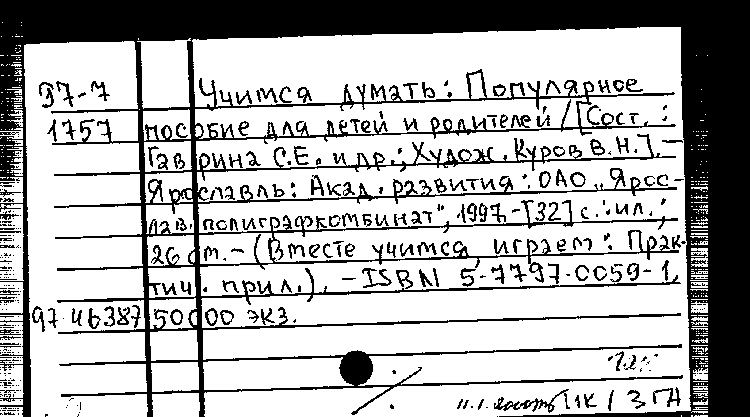 Э7-7 Учимся думать: Популярное
1757 пособие для детей и родителей / [Сост.:
Гаврина С.Е. и др.; Худож. Куров В.Н.]. -
Ярославль: Акад. развития: ОАО „Ярос-
лав. полиграфкомбинат", 1997. - [32] с.: ил.;
26 см. - (Вместе учимся, играем: Прак-
тич. прил.). - ISBN 5-7797-0059-1.
97-46387 50000 экз.
ПК / ЗГА